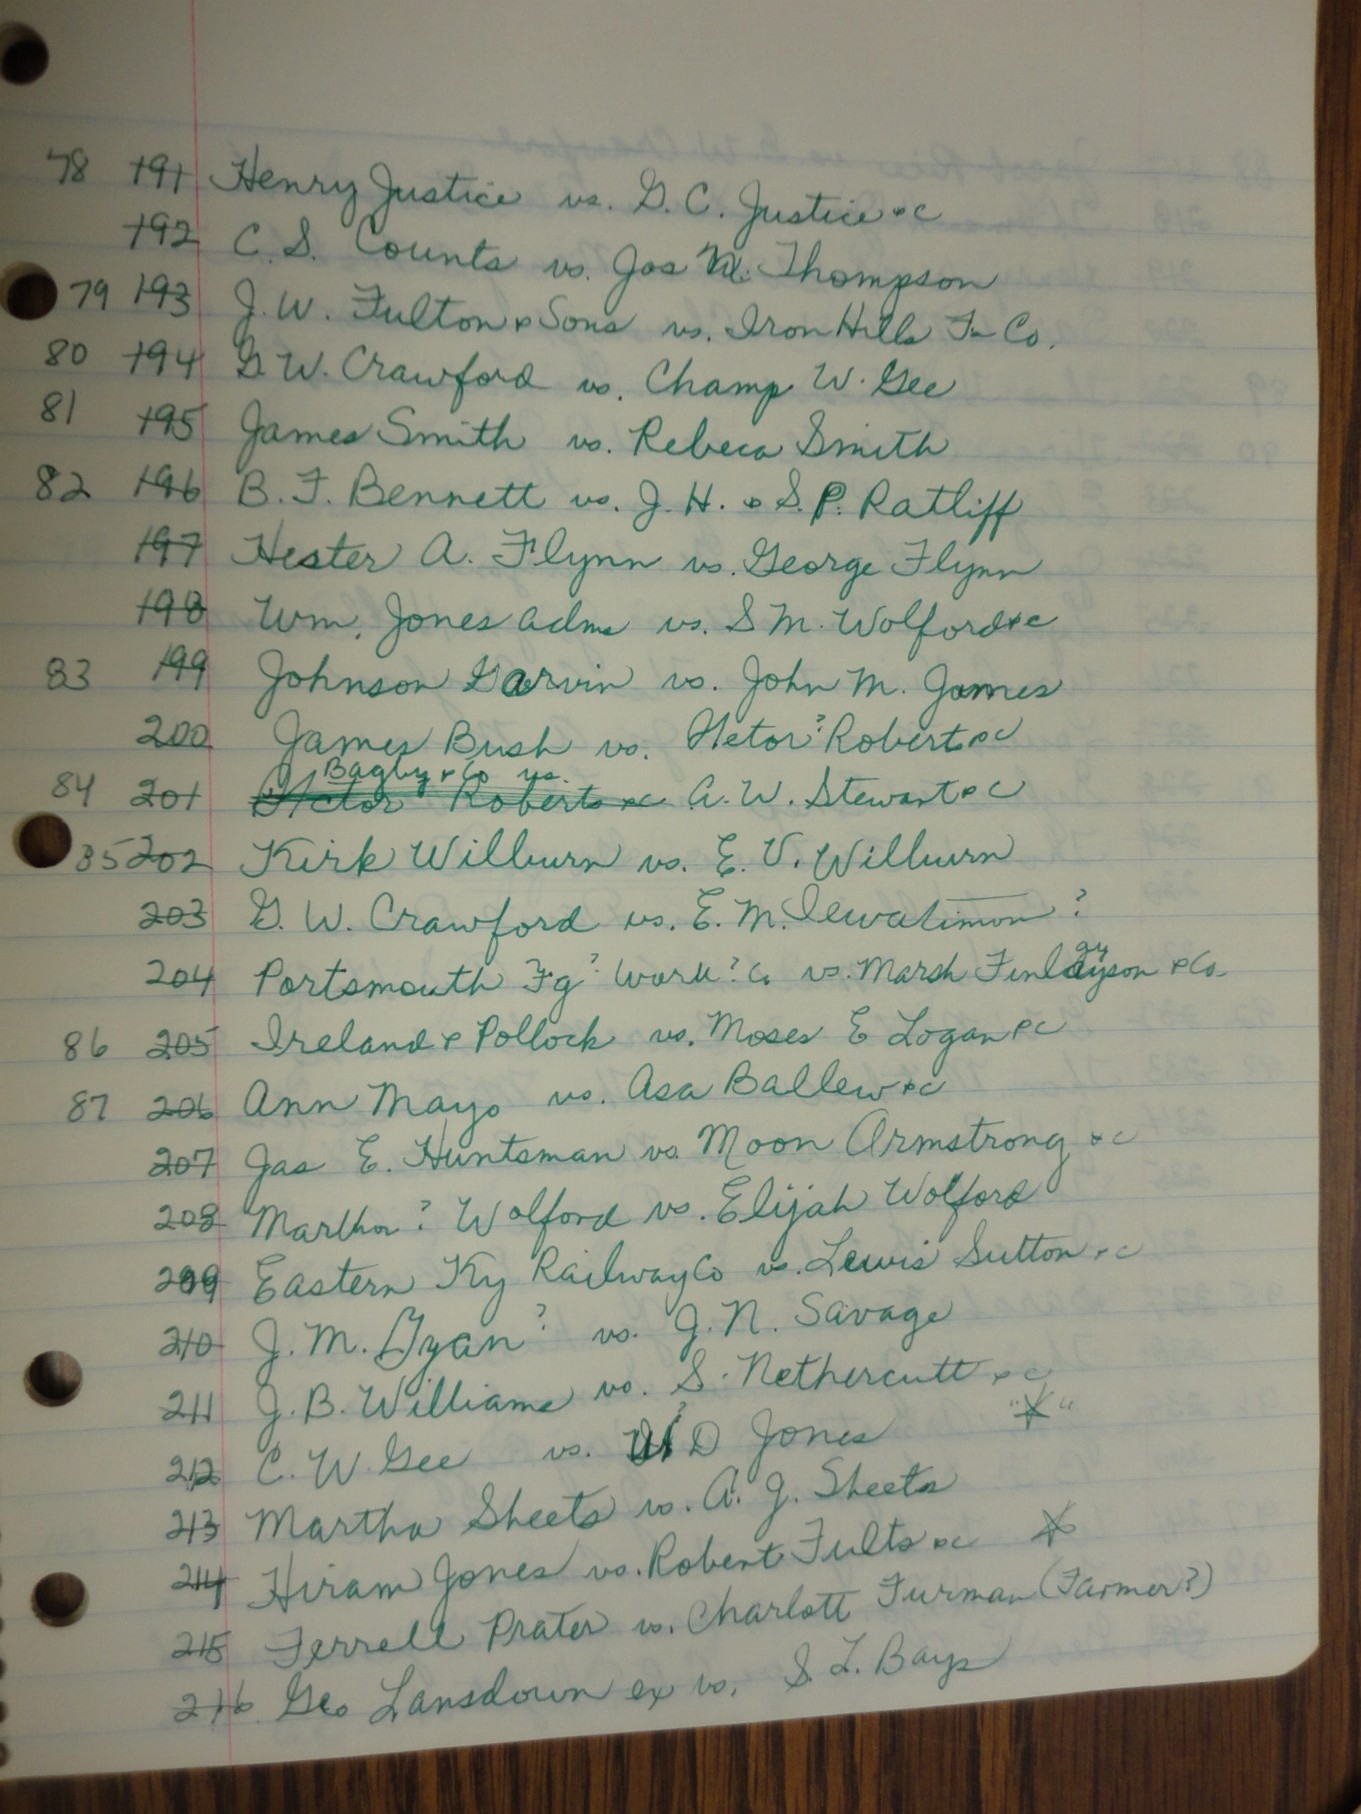 78 191 Henry Justice vs. G. C. Justice &c
192 C. S. Counts vs. Jas M. Thompson
79 193 J. W. Fulton & Sons vs. Iron Hills Fn Co.
80 194 G. W. Crawford vs. Champ W. Gee
81 195 James Smith vs. Rebeca Smith
82 196 B. F. Bennett vs. J. H. & S. P. Ratliff
197 Hester A. Flynn vs. George Flynn
198 Wm. Jones adms vs. S M. Wolford &c
83 199 Johnson Garvin vs. John M. James
200 James Bush vs. Hetor? Roberts &c
Bagby & Co vs.
84 201 Hctor Roberts &c A. W. Stewart &c
85 202 Kirk Wilburn vs. E. V. Wilburn
203 G. W. Crawford vs. E. M. ?
204 Portsmouth Fg? Work? Co vs. Marsh Finlayson & Co.
86 205 Ireland & Pollock vs. Moses E Logan &c
87 206 Ann Mayo vs. Asa Ballew &c
207 Jas E. Huntsman vs Moon Armstrong &c
208 Martha? Wolford vs. Elijah Wolford
209 Eastern Ky Railway Co vs. Lewis Sutton &c
210 J. M. Gyan? vs. J. N. Savage
211 J. B. Williams vs. S. Nethercutt &c
212 C. W. Gee vs. W? D Jones "*"
213 Martha Sheets vs. A. J. Sheets
214 Hiram Jones vs. Robert Fults &c *
215 Ferrell Prater vs. Charlott Furman (Farmer?)
216 Geo Lansdown ex vs. S. L. Bays